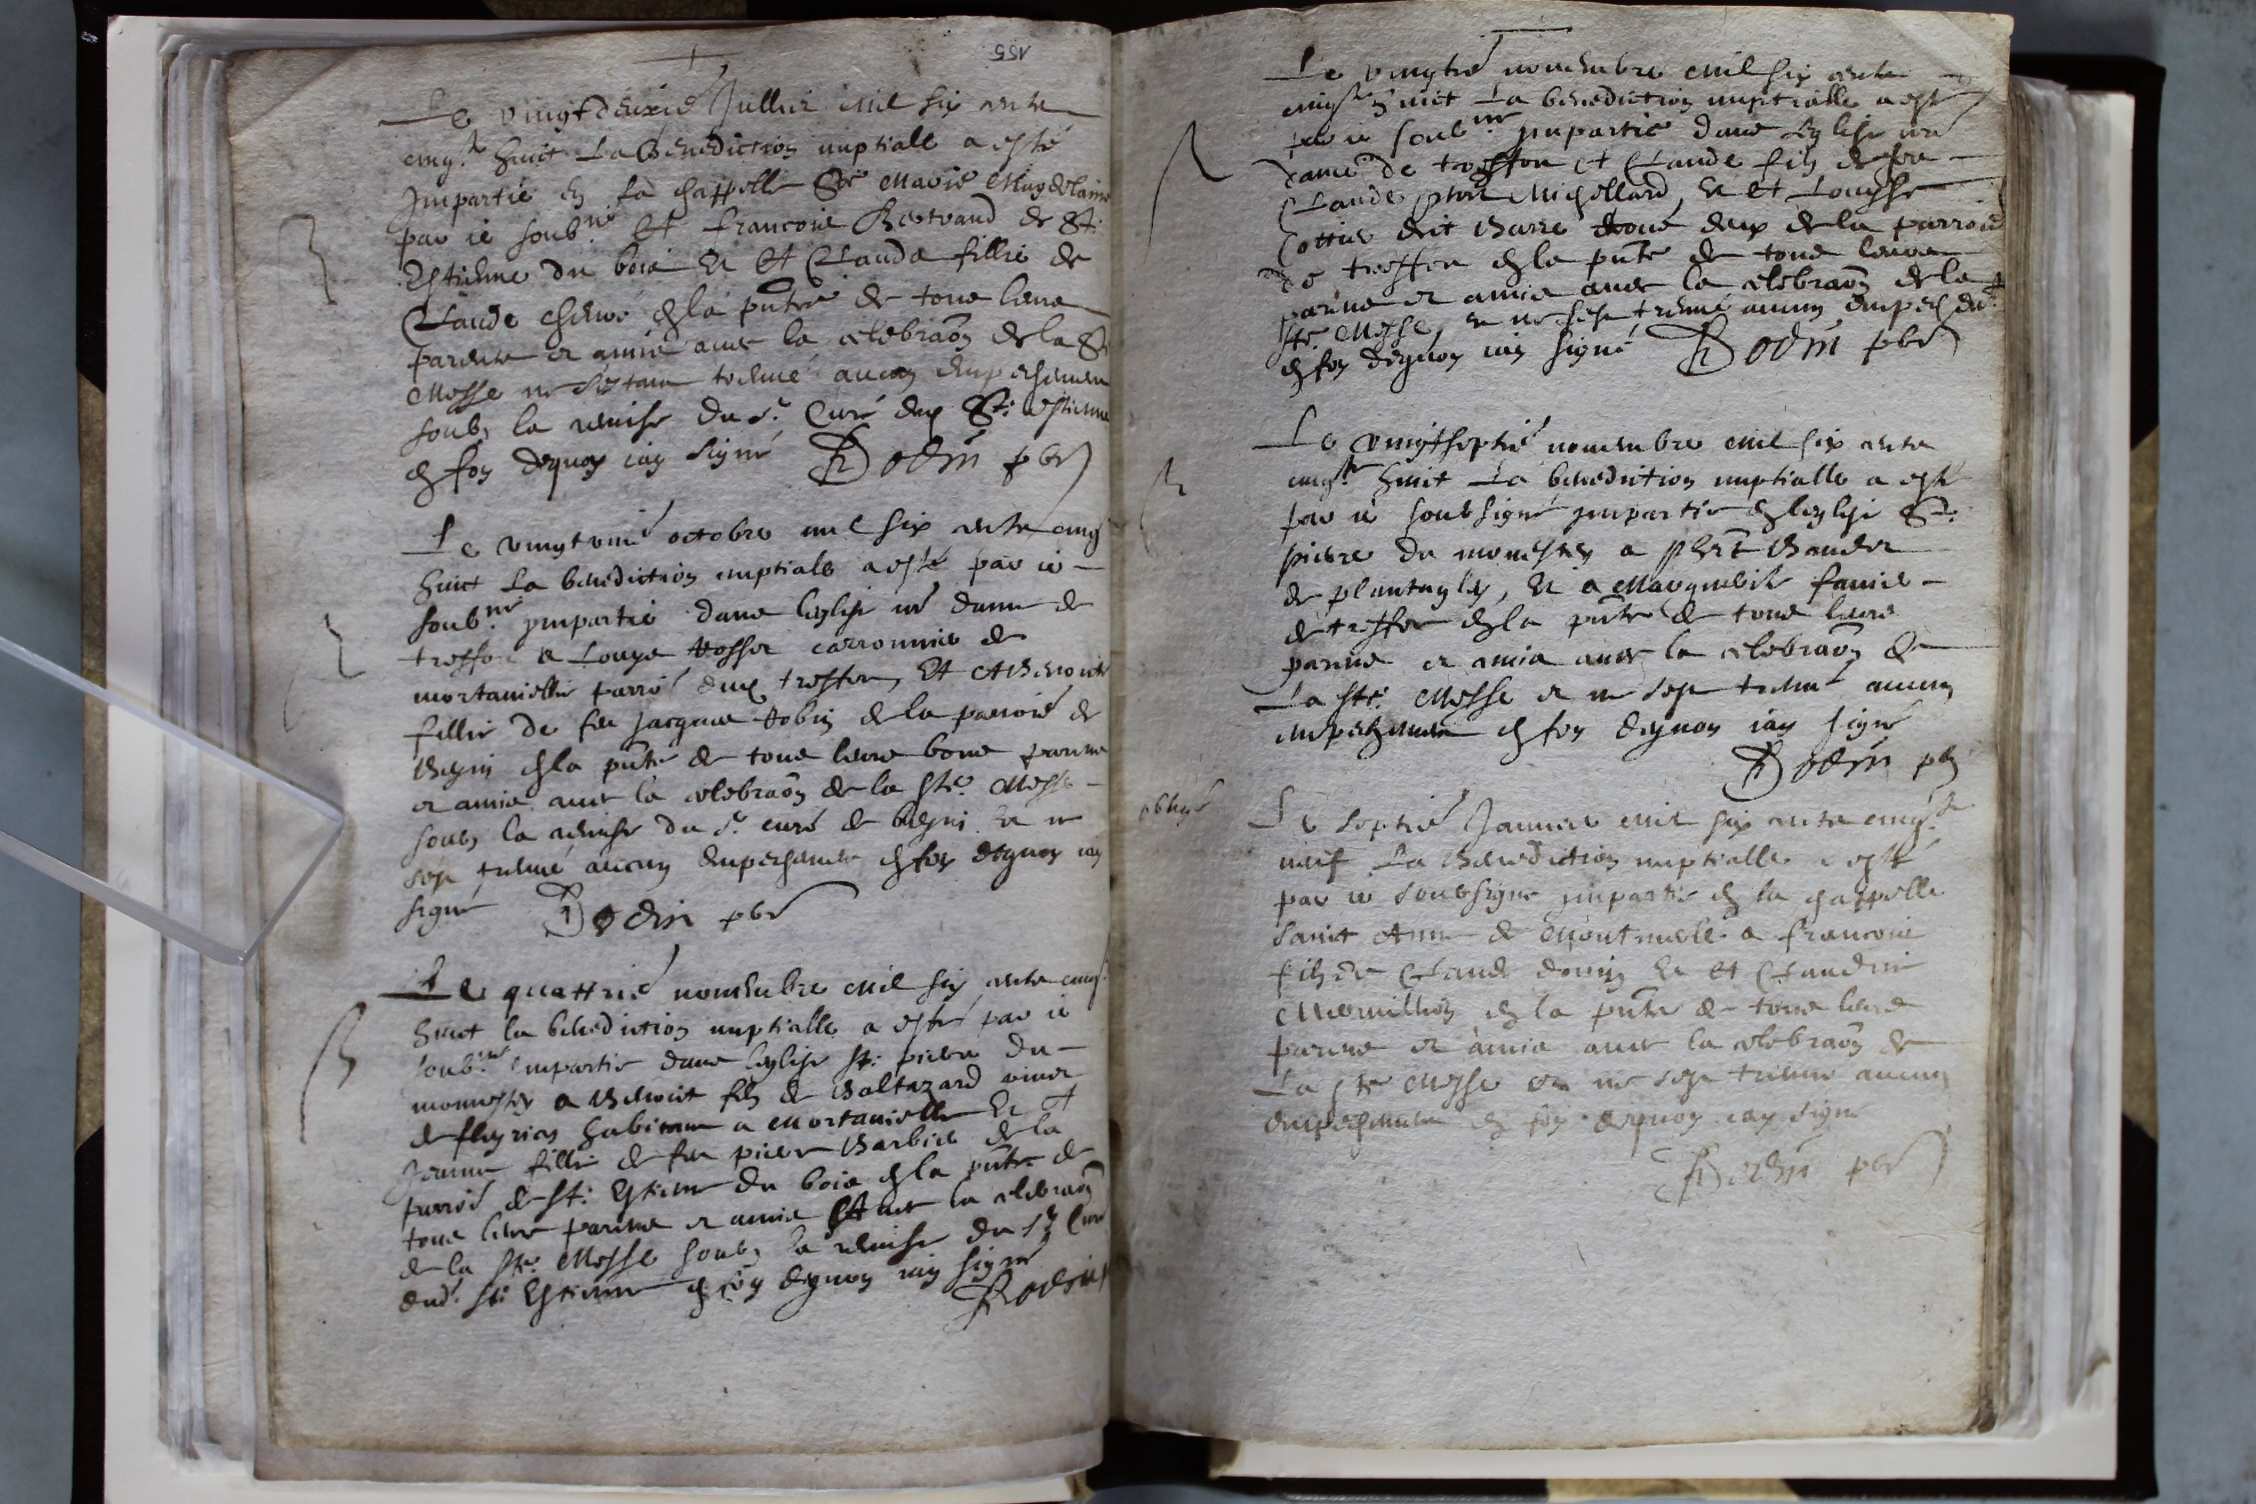 155
Le vingtdeuxie Juillet mil six cents
cinqte huict La Benediction nuptiale a esté
Impartie en la chappelle Ste Marie Magdelaine
par ie soubné Et francois Bertrand de St:
Estienne du bois Et Et Clauda fillie de
Claude en la pnte de tous leurs
parents et amis avec la celebraon de la Ste
Messe ne sestant treuué aucun empeschement
soubs la remise du sr Curé dud St: Estienne
en foy dequoy iay signé Bodin pbr
Le vingt octobre mil six cents cinqte
huict La benediction nuptiale a esté par ie
soubné ympartie dans leglise nre dame de
treffor a Louys carronnier de
mortaniellie parroe dud treffor, Et A Benoiste
fillie de feu Jacques de la parroie de
en la pnte de tous leurs bons parens
et amis avec la celebraon de la Ste Messe
soubs la remise du sr curé de Et ne
sest treuué aucun empeschement en foy dequoy iay
signé Bodin pbr
Le quattrie nouembre mil six cents cinqte
huict la benediction nuptialle a esté par ie
soubné Impartie dans leglise St: pierre du
monnestier a Benoit filz de Baltazard
de fleyria habitant a Mortaniellie Et Et
Jeanne fillie de feu pierre Barbier de la
parroe de St: Estienne du bois en la pnte de
tous leurs parens et amis Et avec la celebraon
de la Ste Messe soubs la remise du sr Curé
dud. St: Estienne en foy dequoy iay signé
Bodin
Le vingtie nouembre mil six cents
cinqte huict La benediction nuptialle a esté
par ie soubné ympartie dans leglise nre
dame de treffor Et Claude filz de feu
Claude Michellard, Et Et Louyse
Cottier dit Barre tous deux de la parroie
de treffor en la pnte de tous leurs
parens et amis avec la celebraon de la
Ste Messe, et ne sest treuué aucun empeschent
en foy dequoy iay signé Bodin pbr
Le vingtseptie nouembre mil six cents
cinqte huict La benediction nuptialle a esté
par ie soubsigné ympartie en leglise St:
pierre du monestier a phbt Baudet
de plantaglay, Et a Marguerite
de treffor en la pnte de tous leurs
parens et amis avec la celebraon de
La Ste: Messe et ne sest treuué aucun
empeschement en foy dequoy iay signé
Bodin pbr
Le septie Januier mil six cents cinqte
neuf La Benediction nuptialle a esté
par ie soubsigné ympartie en la chappelle
sainct Anne de Montmerle a francois
filz de Claude Et Et Claudine
Mermillion en la pnte de tous leurs
parens et amis avec la celebraon de
La Ste Messe et ne sest treuué aucun
empeschement en foy dequoy iay signé
Bodin pbr